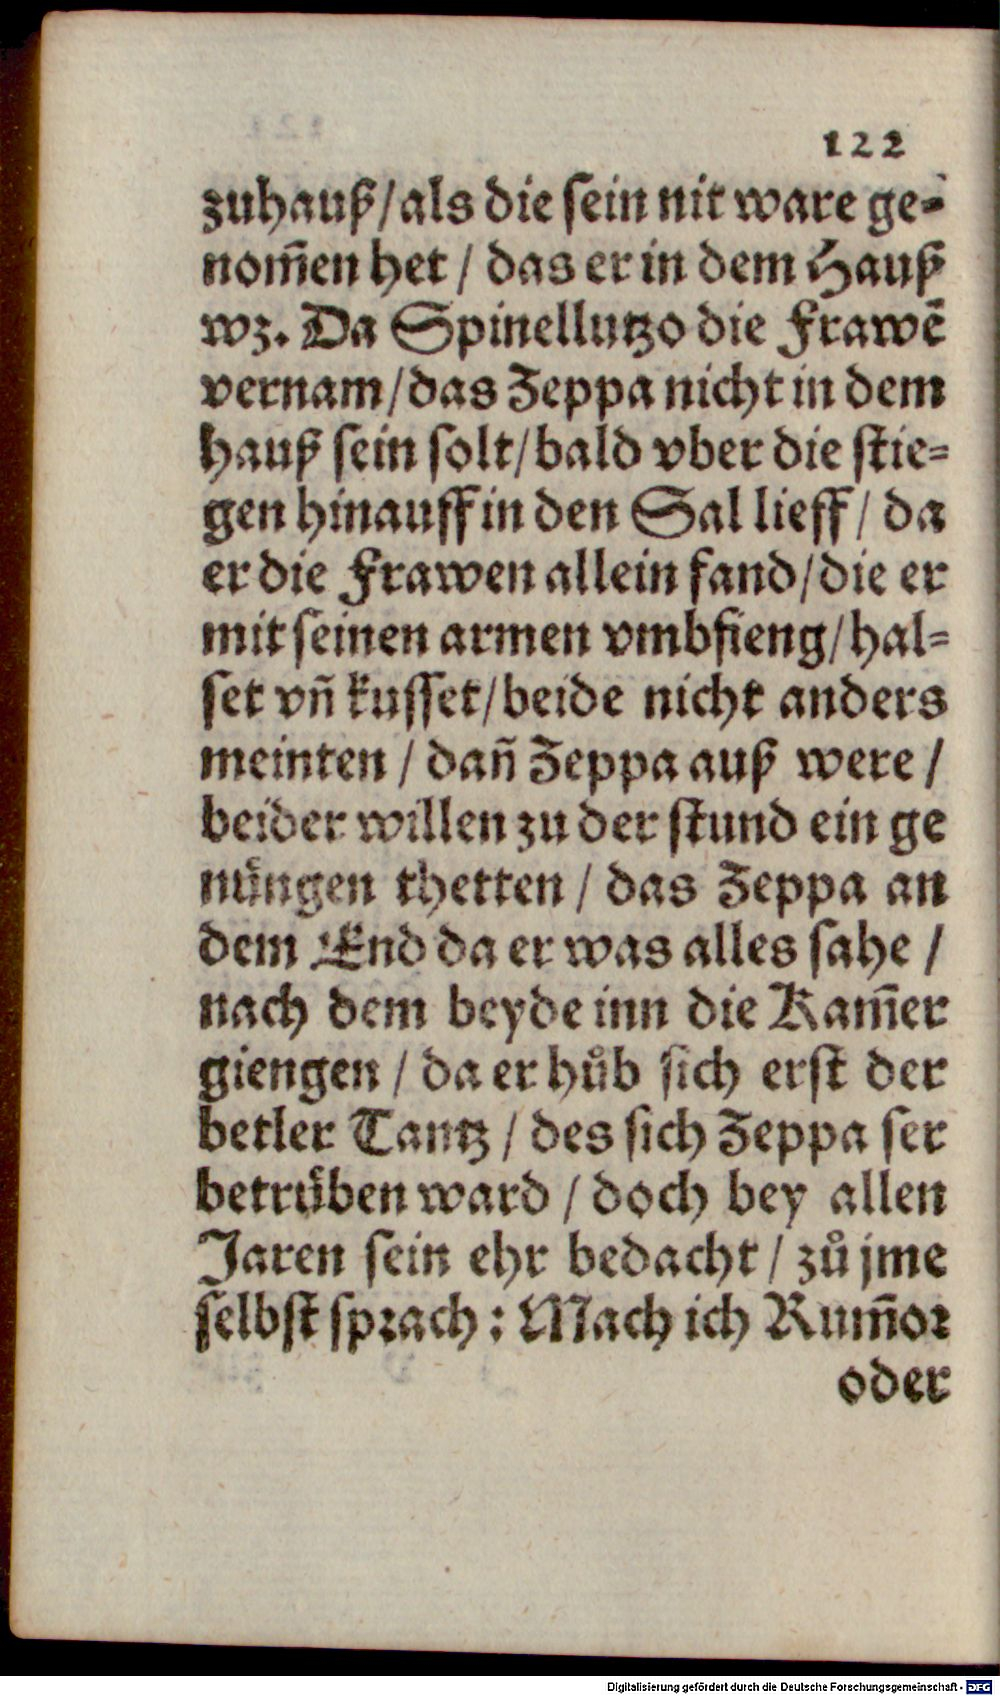 122
zuhauß/als die sein nit ware ge-
nom̄en het / das er in dem Hauß
wz. Da Spinellutzo die Frawē
vernam/das Zeppa nicht in dem
hauß sein solt/bald vber die stie-
gen hinauff in den Sal lieff / da
er die Frawen allein fand/die er
mit seinen armen vmbfieng/hal-
set vn̄ kusset/beide nicht anders
meinten / dan̄ Zeppa auß were /
beider willen zu der stund ein ge
nuͤngen thetten / das Zeppa an
dem End da er was alles sahe /
nach dem beyde inn die Kam̄er
giengen / da er huͦb sich erst der
betler Tantz / des sich Zeppa ser
betruͤben ward / doch bey allen
Jaren sein ehr bedacht / zuͦ jme
selbst sprach : Mach ich Rum̄or
oder
Digitalisierung gefördert durch die Deutsche Forschungsgemeinschaft - DFG